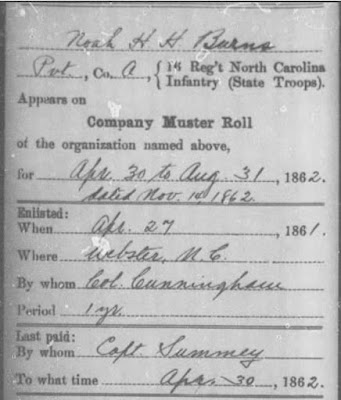 Noah H H Burns
Pvt., Co. A, { 16 Reg't North Carolina
Infantry (State Troops).
Appears on
Company Muster Roll
of the organization named above,
for Apr. 30 to Aug. 31, 1862.
dated Nov. 14, 1862.
Enlisted:
When Apr. 27, 1861.
Where Webster, N.C.
By whom Col. Cunningham
Period 1 yr.
Last paid:
By whom Capt. Summey
To what time Apr. 30, 1862.